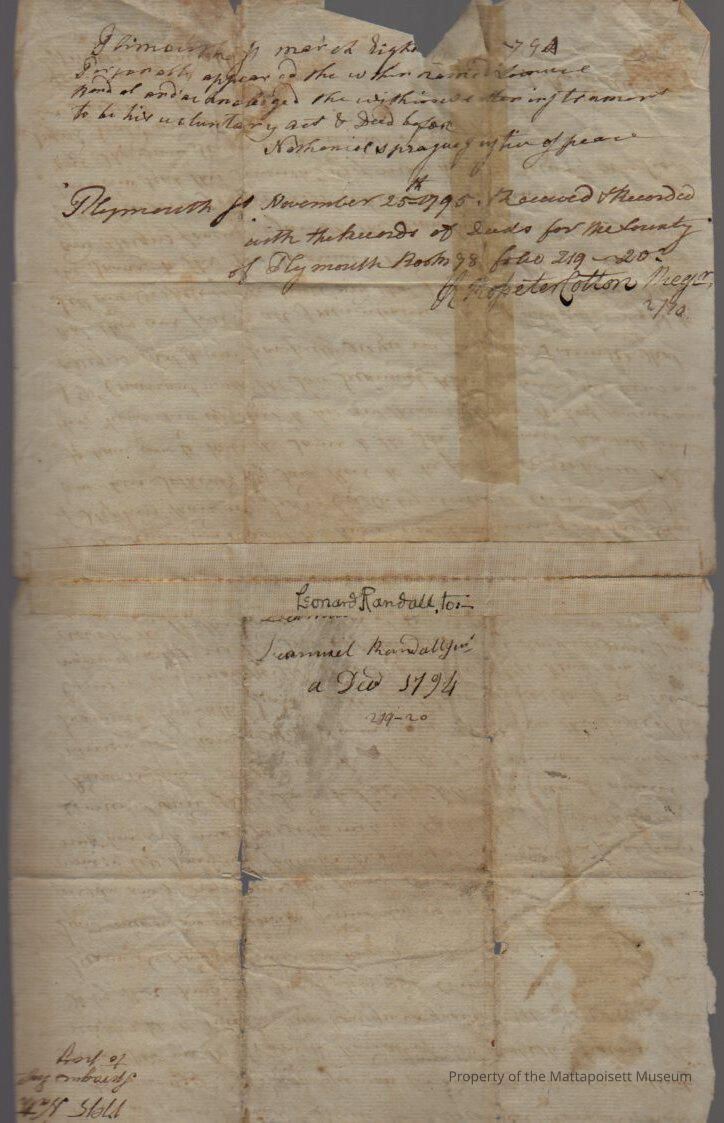 Plimouth ss march Eight 1794
Personally appeared the within named Lemuel
Randel and acknoledged the within written instrument
to be his voluntary act & Deed before
Nathaniel sprague justice of peace
Plymouth ss November 25th 1795. Received & Recorded
with the Records of Deeds for the County
of Plymouth Book 78 folio 219 - 20.
Rossiter Cotton Regr.
Leonard Randall, to:-
Lemuel Randall junr
a Ded 1794
219-20
1795 Nath
Sprague
to pay
Property of the Mattapoisett Museum